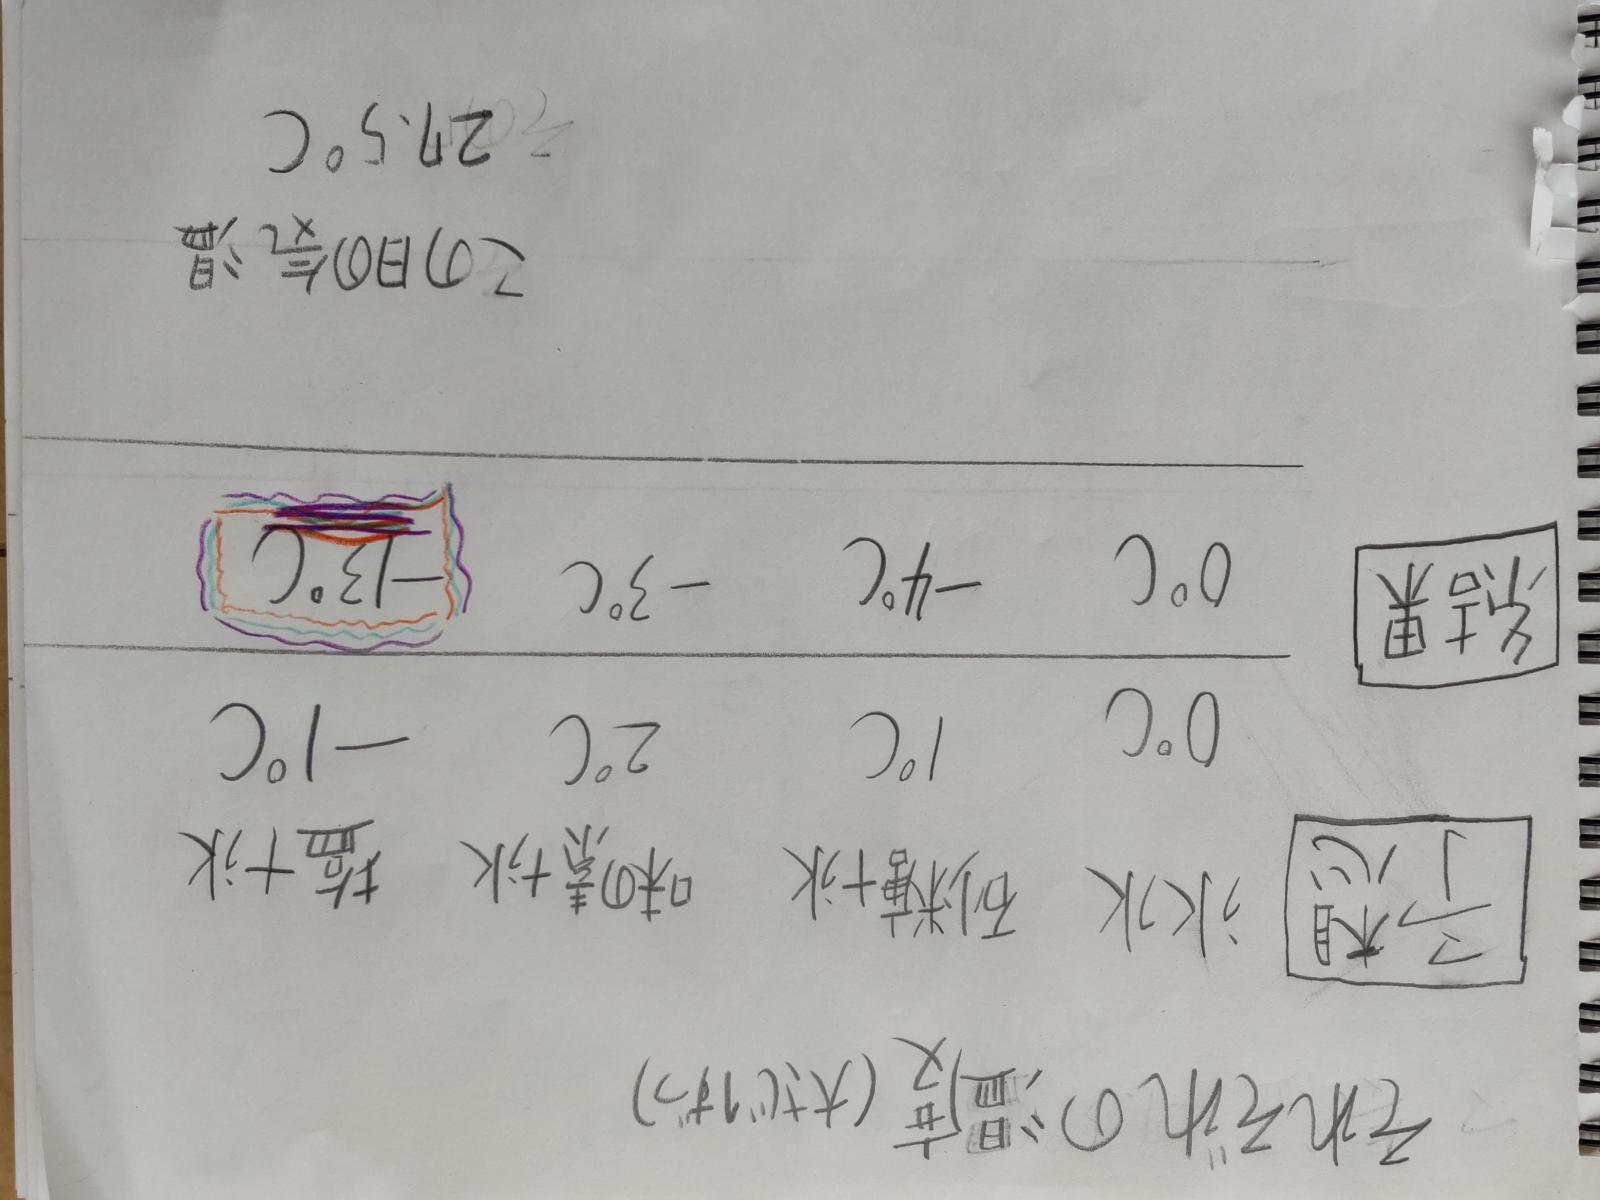 それぞれの温度(大さじ1ずつ)
予想
氷水 砂糖+氷 味の素+氷 塩+氷
0°C 1°C 2°C -1°C
結果
0°C -4°C -3°C -13°C
この日の気温
27.5°C